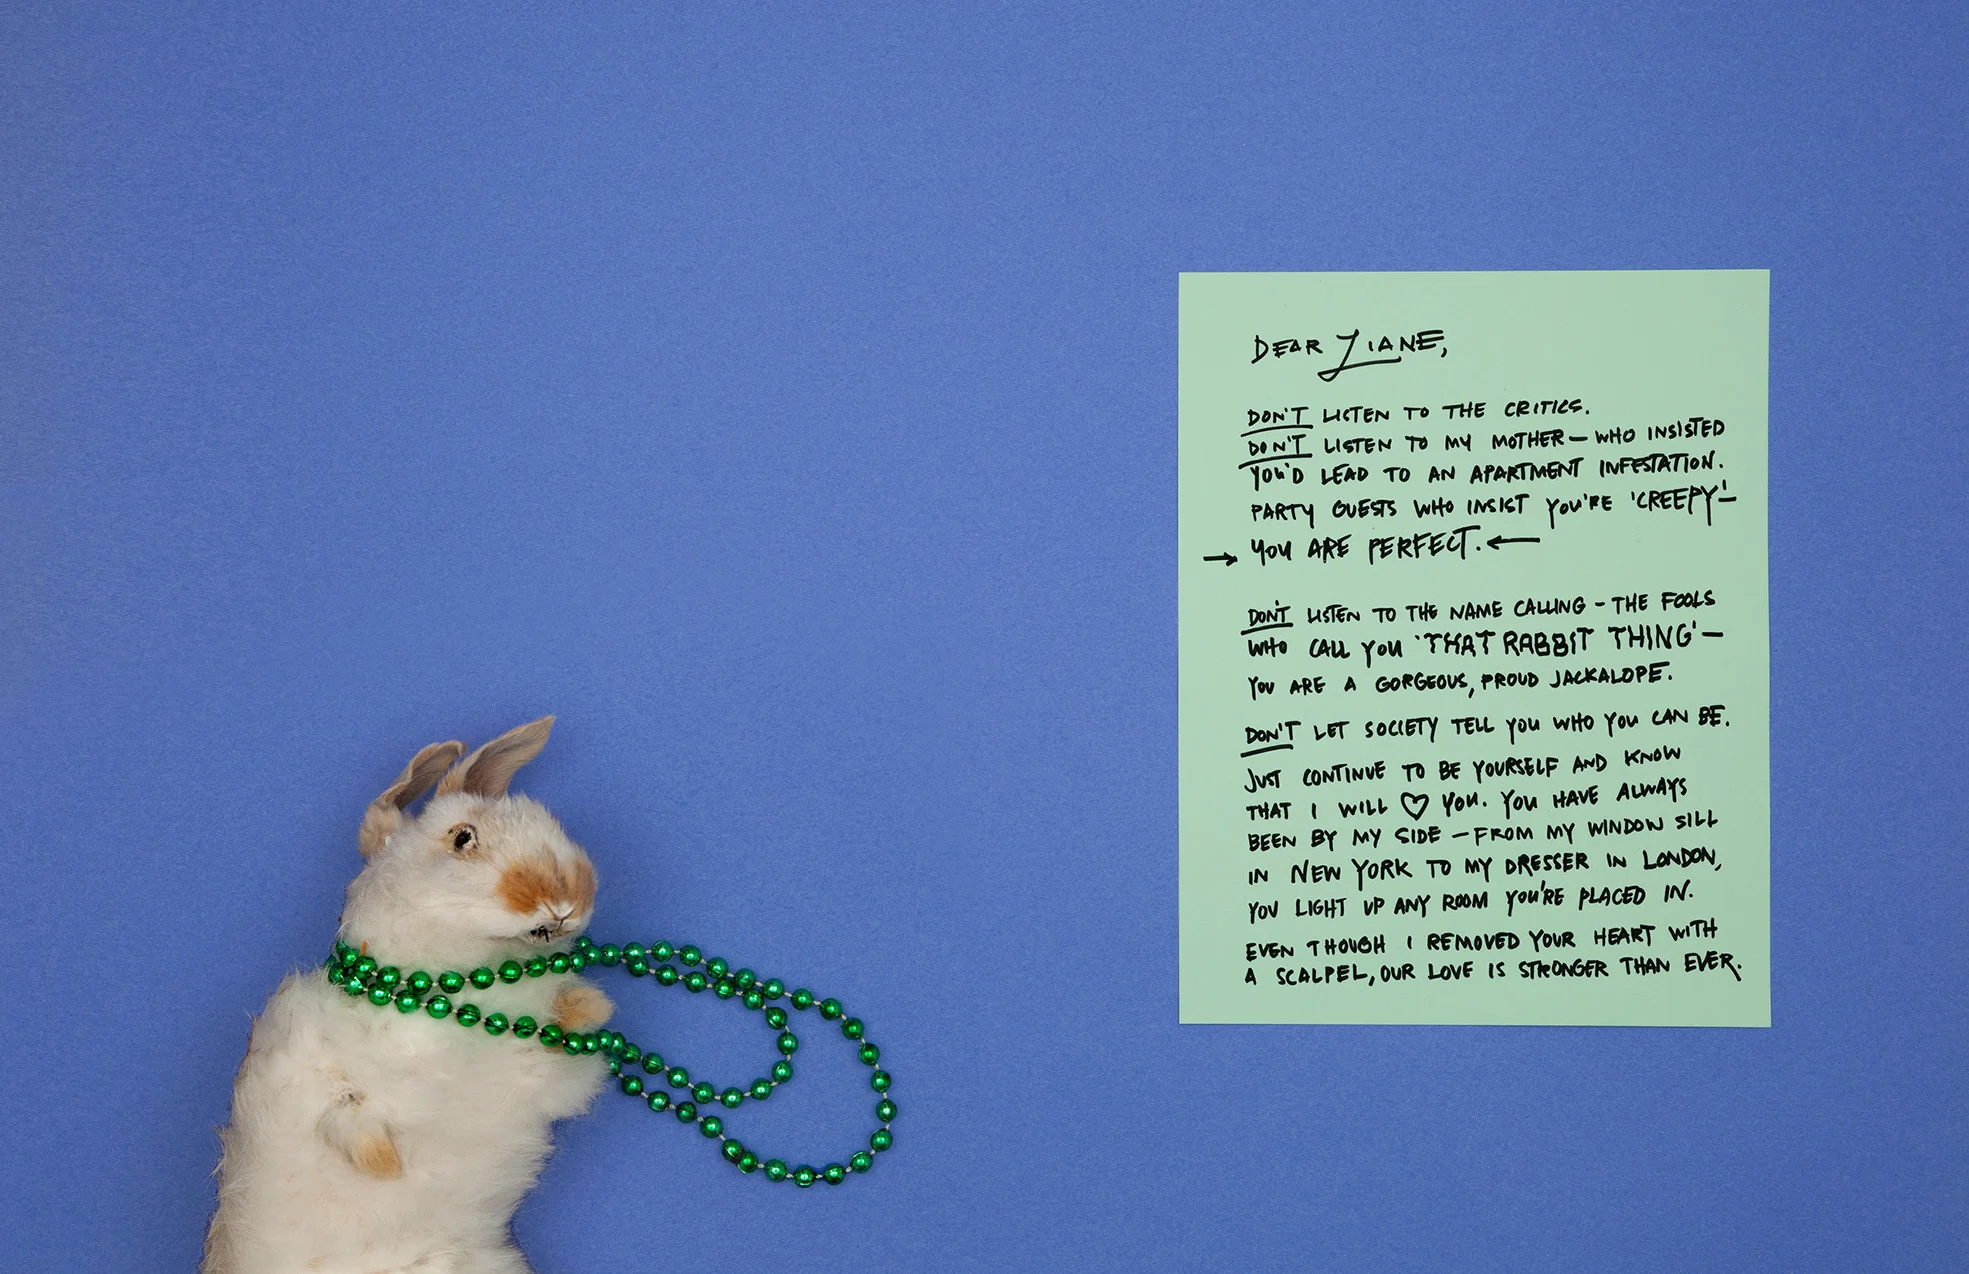 DEAR LIANE,
DON'T LISTEN TO THE CRITICS.
DON'T LISTEN TO MY MOTHER — WHO INSISTED
YOU'D LEAD TO AN APARTMENT INFESTATION.
PARTY GUESTS WHO INSIST YOU'RE 'CREEPY' —
→ YOU ARE PERFECT. ←
DON'T LISTEN TO THE NAME CALLING - THE FOOLS
WHO CALL YOU 'THAT RABBIT THING' —
YOU ARE A GORGEOUS, PROUD JACKALOPE.
DON'T LET SOCIETY TELL YOU WHO YOU CAN BE.
JUST CONTINUE TO BE YOURSELF AND KNOW
THAT I WILL ♡ YOU. YOU HAVE ALWAYS
BEEN BY MY SIDE — FROM MY WINDOW SILL
IN NEW YORK TO MY DRESSER IN LONDON,
YOU LIGHT UP ANY ROOM YOU'RE PLACED IN.
EVEN THOUGH I REMOVED YOUR HEART WITH
A SCALPEL, OUR LOVE IS STRONGER THAN EVER.